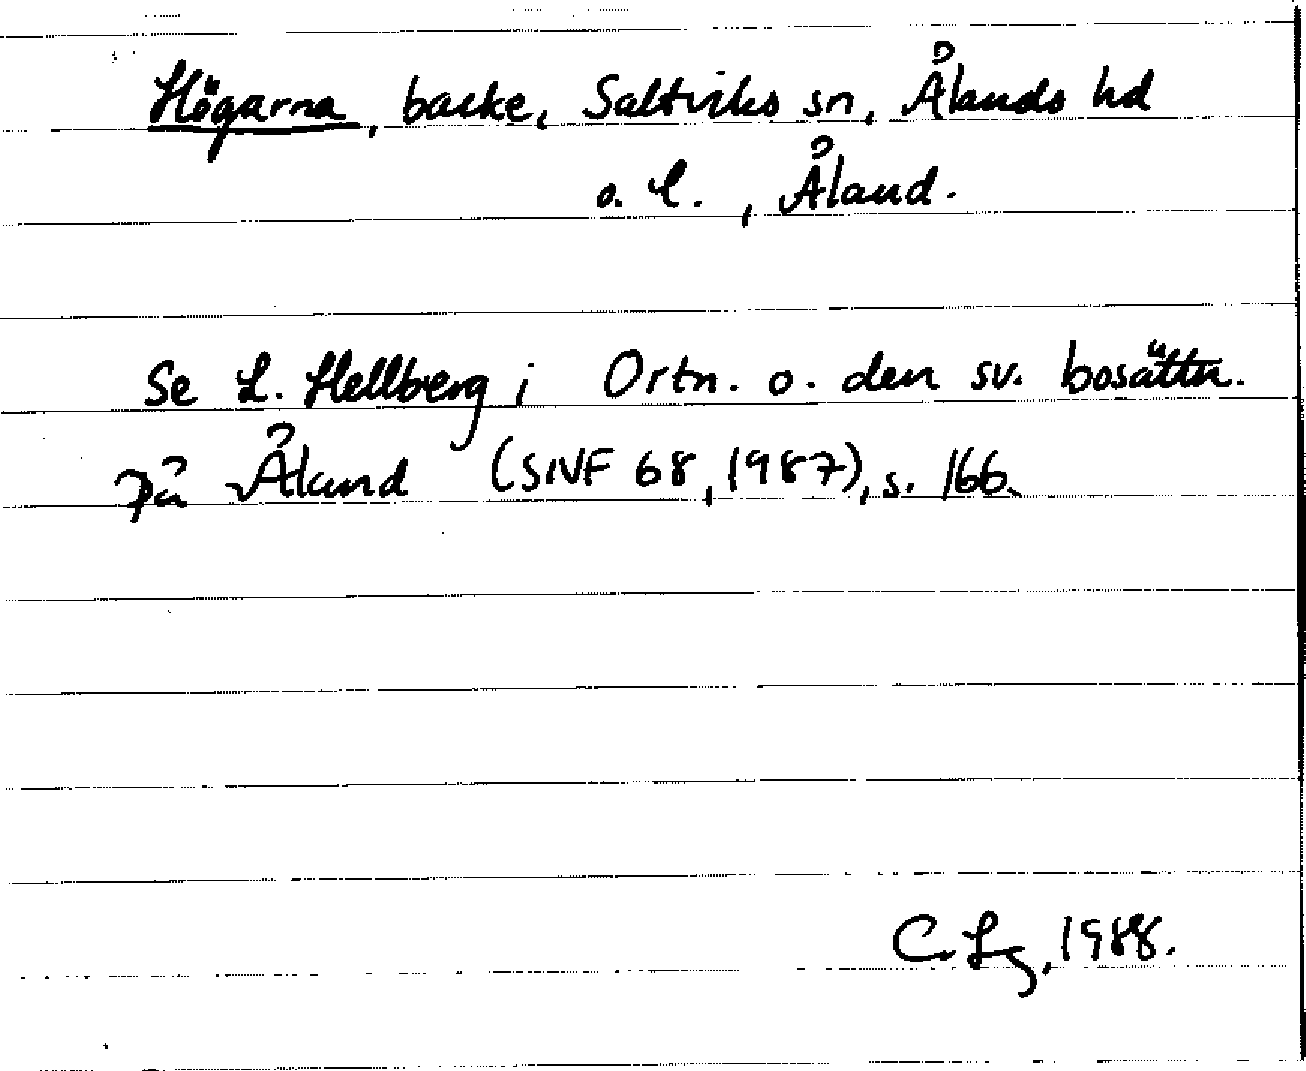 Högarna, backe, Saltviks sn, Ålands hd
o. l., Åland.
Se L. Hellberg i Ortn. o. den sv. bosättn.
på Åland (SNF 68, 1987), s. 166.
C. Lg, 1988.